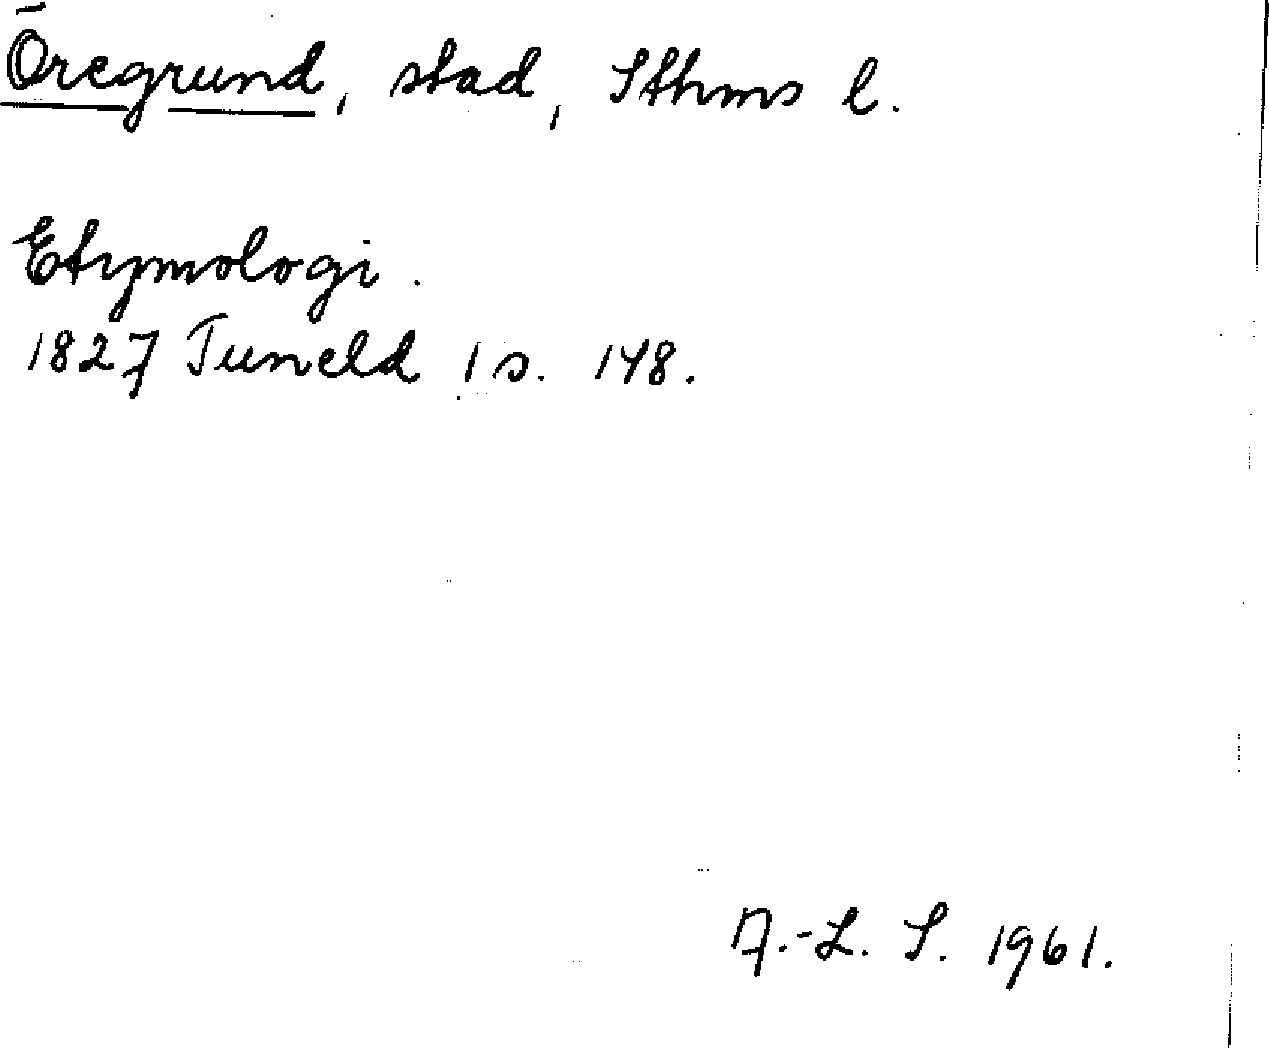 Öregrund, stad, Sthms l.
Etymologi.
1827 Tuneld 1 s. 148.
A.-L. S. 1961.